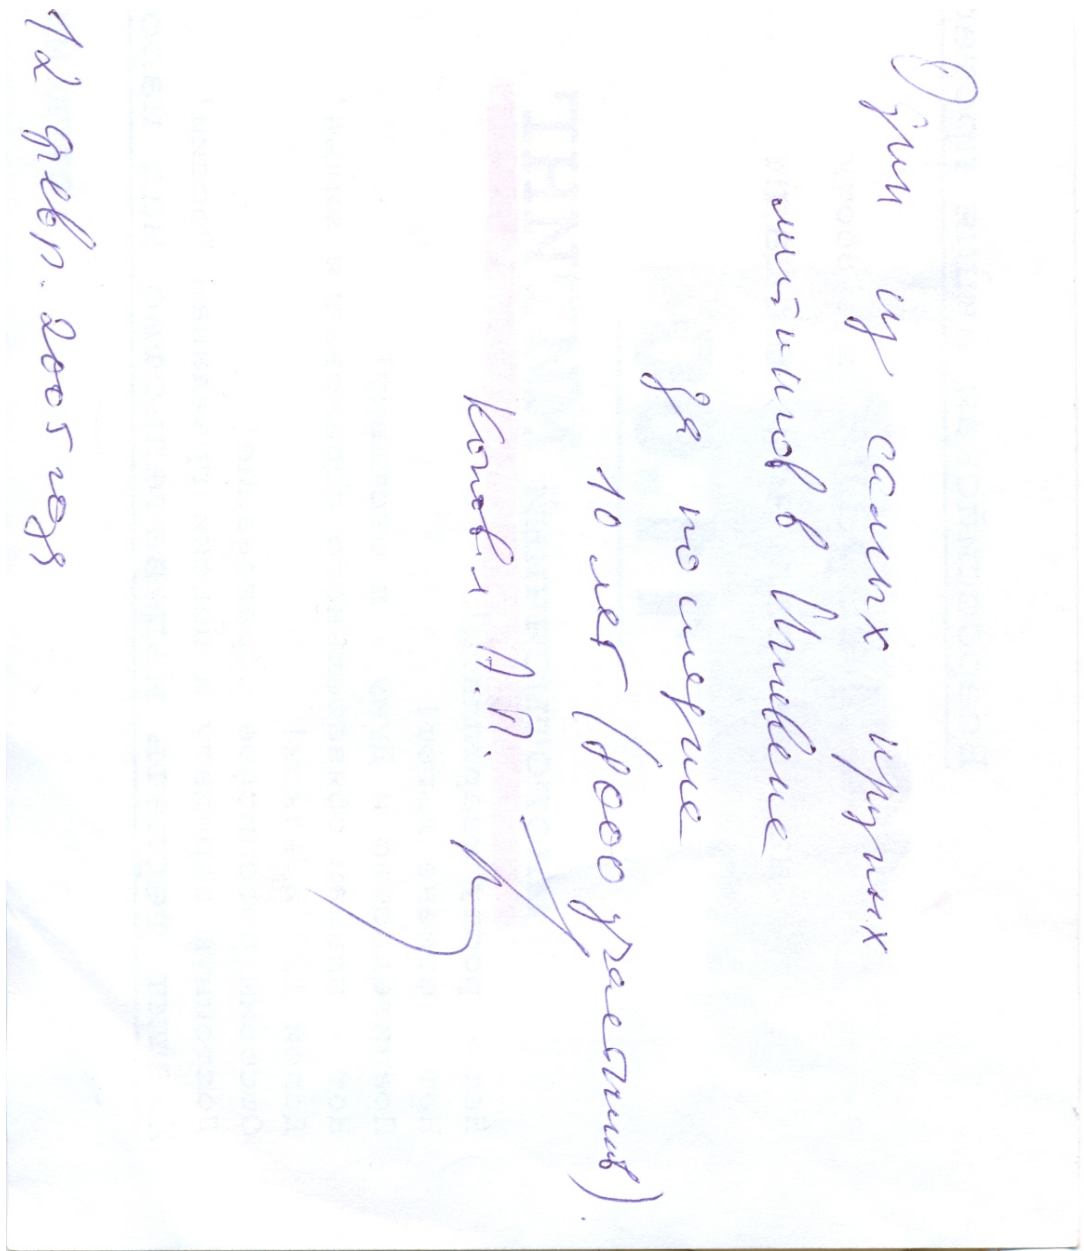 Один из самых крупных
митингов в Ижевске
за последние
10 лет (8000 участников).
Коновал А.П.
12 февр. 2005 года